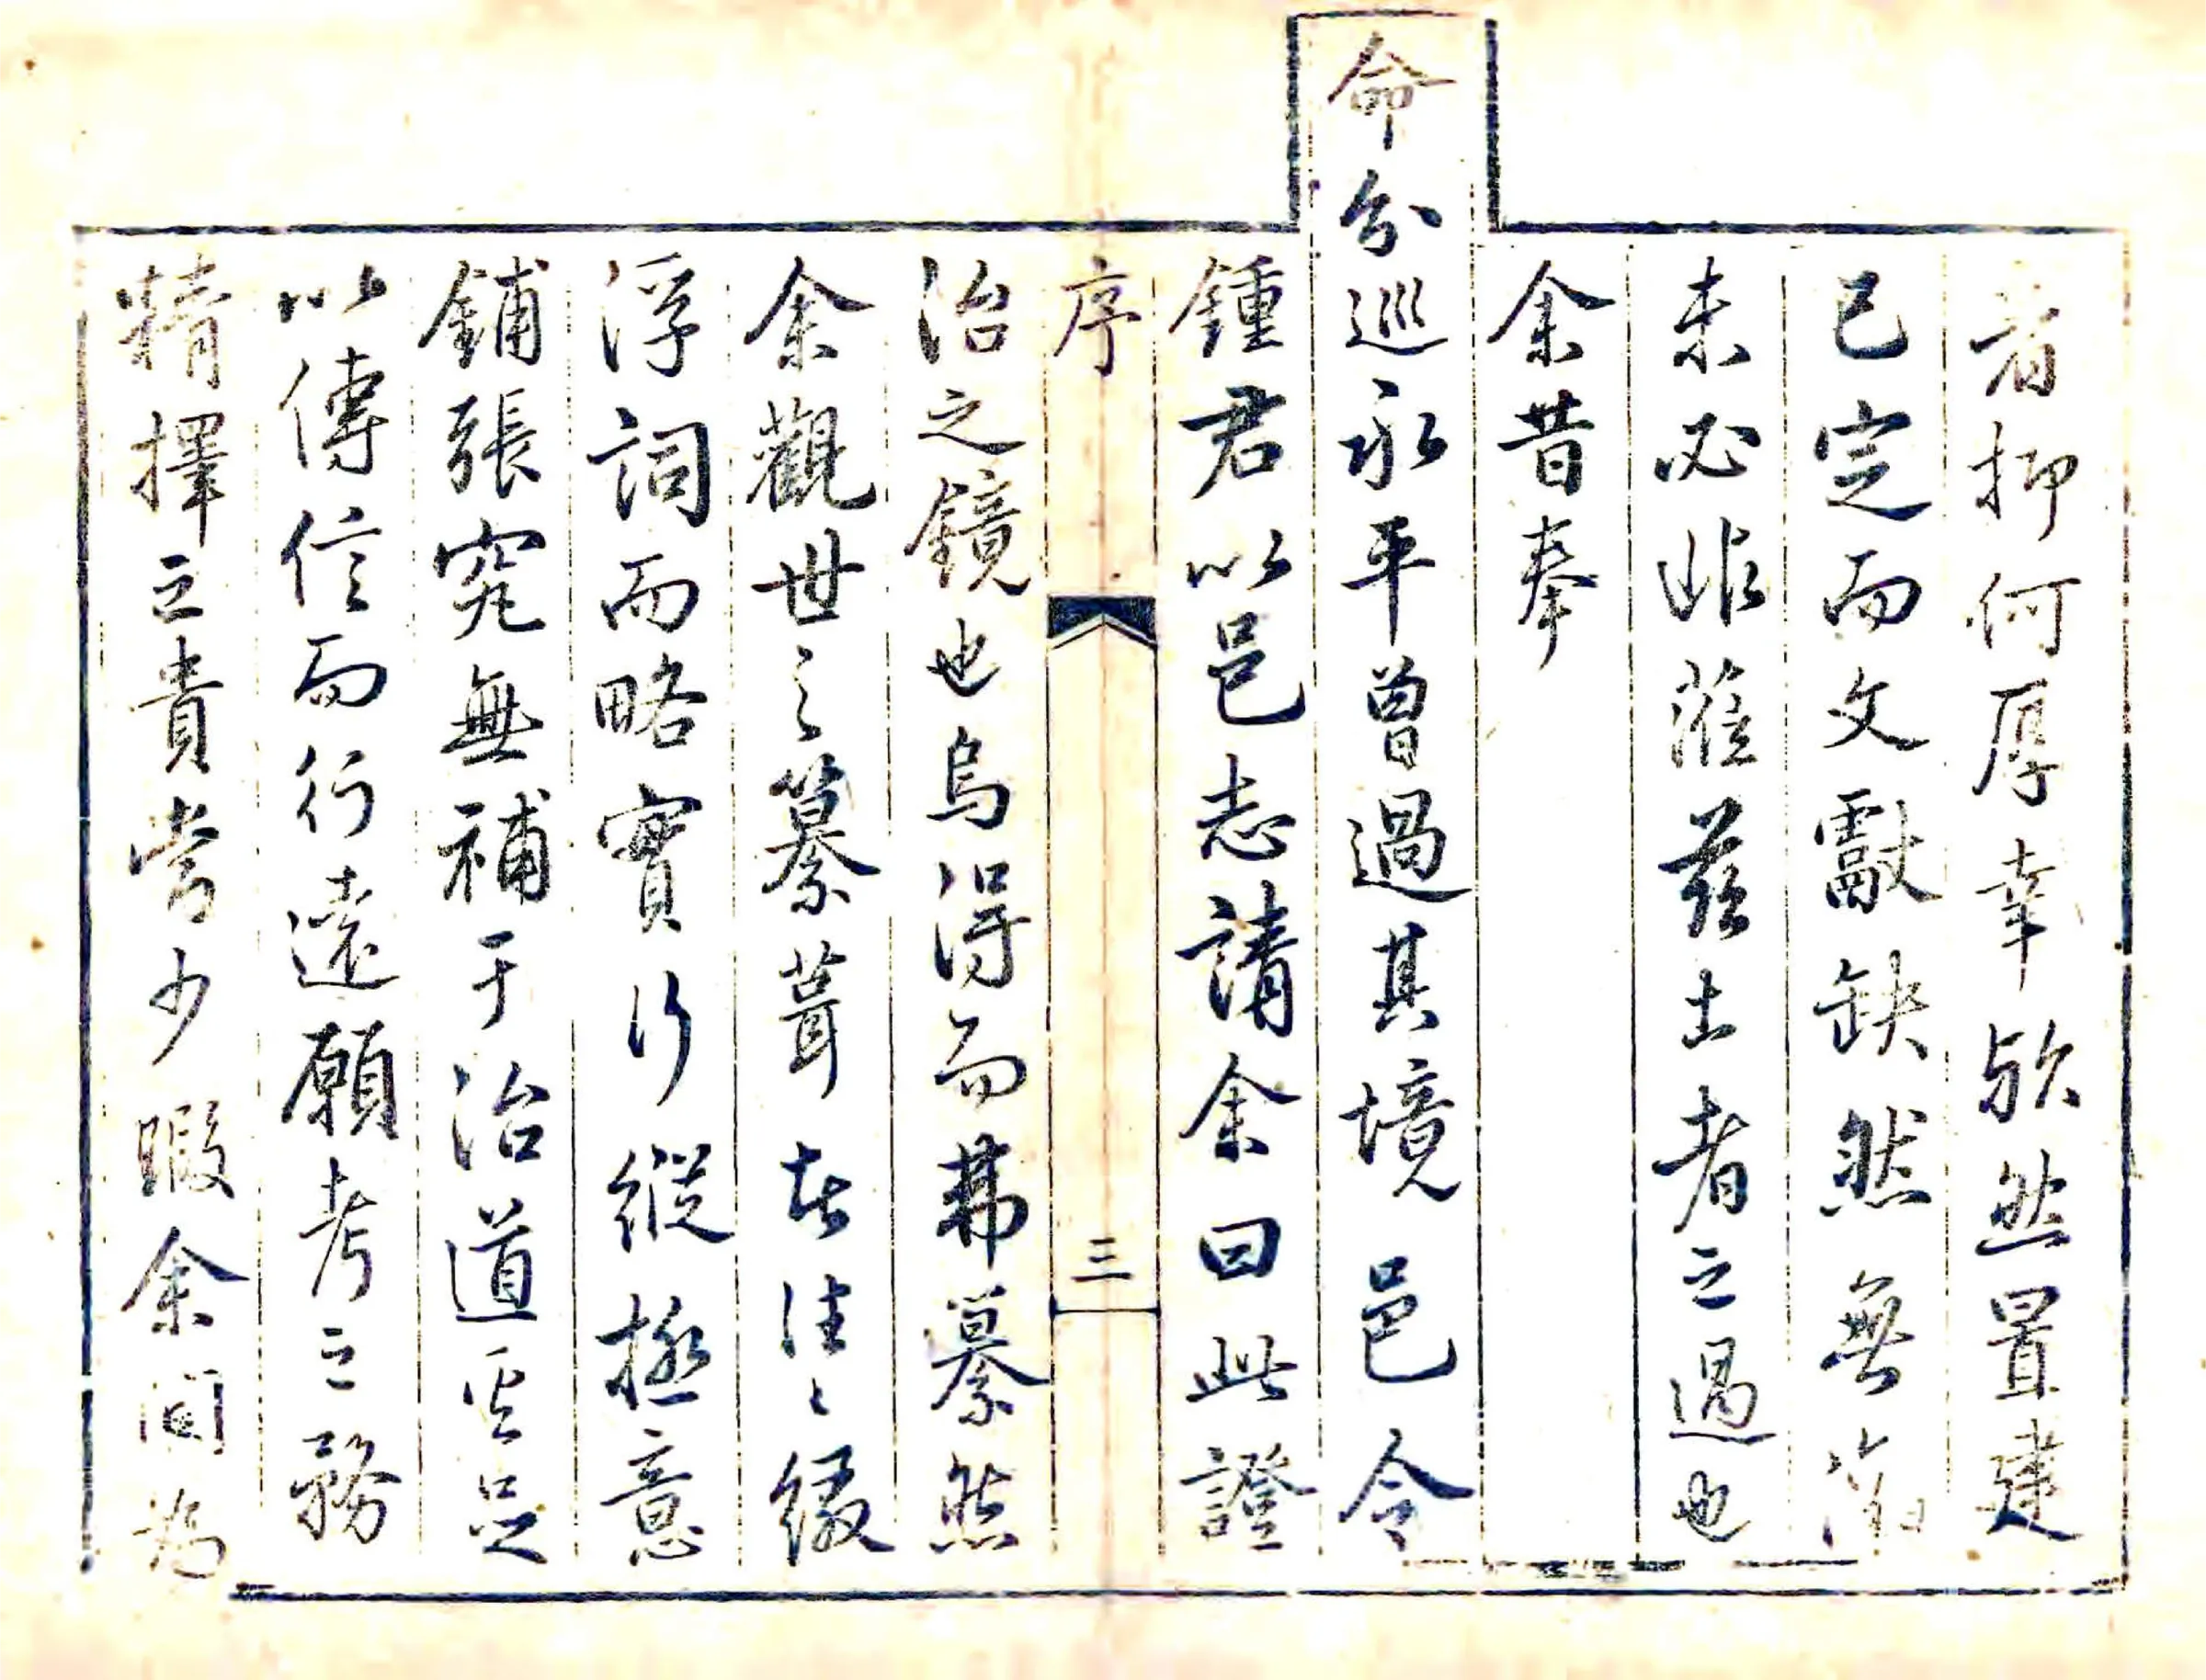 者抑何厚幸歟然置建
已定而文獻缺然無徵
未必非蒞茲土者之過也
余昔奉
命分巡永平曾過其境邑令
鍾君以邑志請余曰此證
序
三
治之鏡也烏得而弗纂然
余觀世之纂葺者往々綴
浮詞而略實行縱極意
鋪張究無補于治道奚足
以傳信而行遠願考之務
精擇之貴當少暇余間為